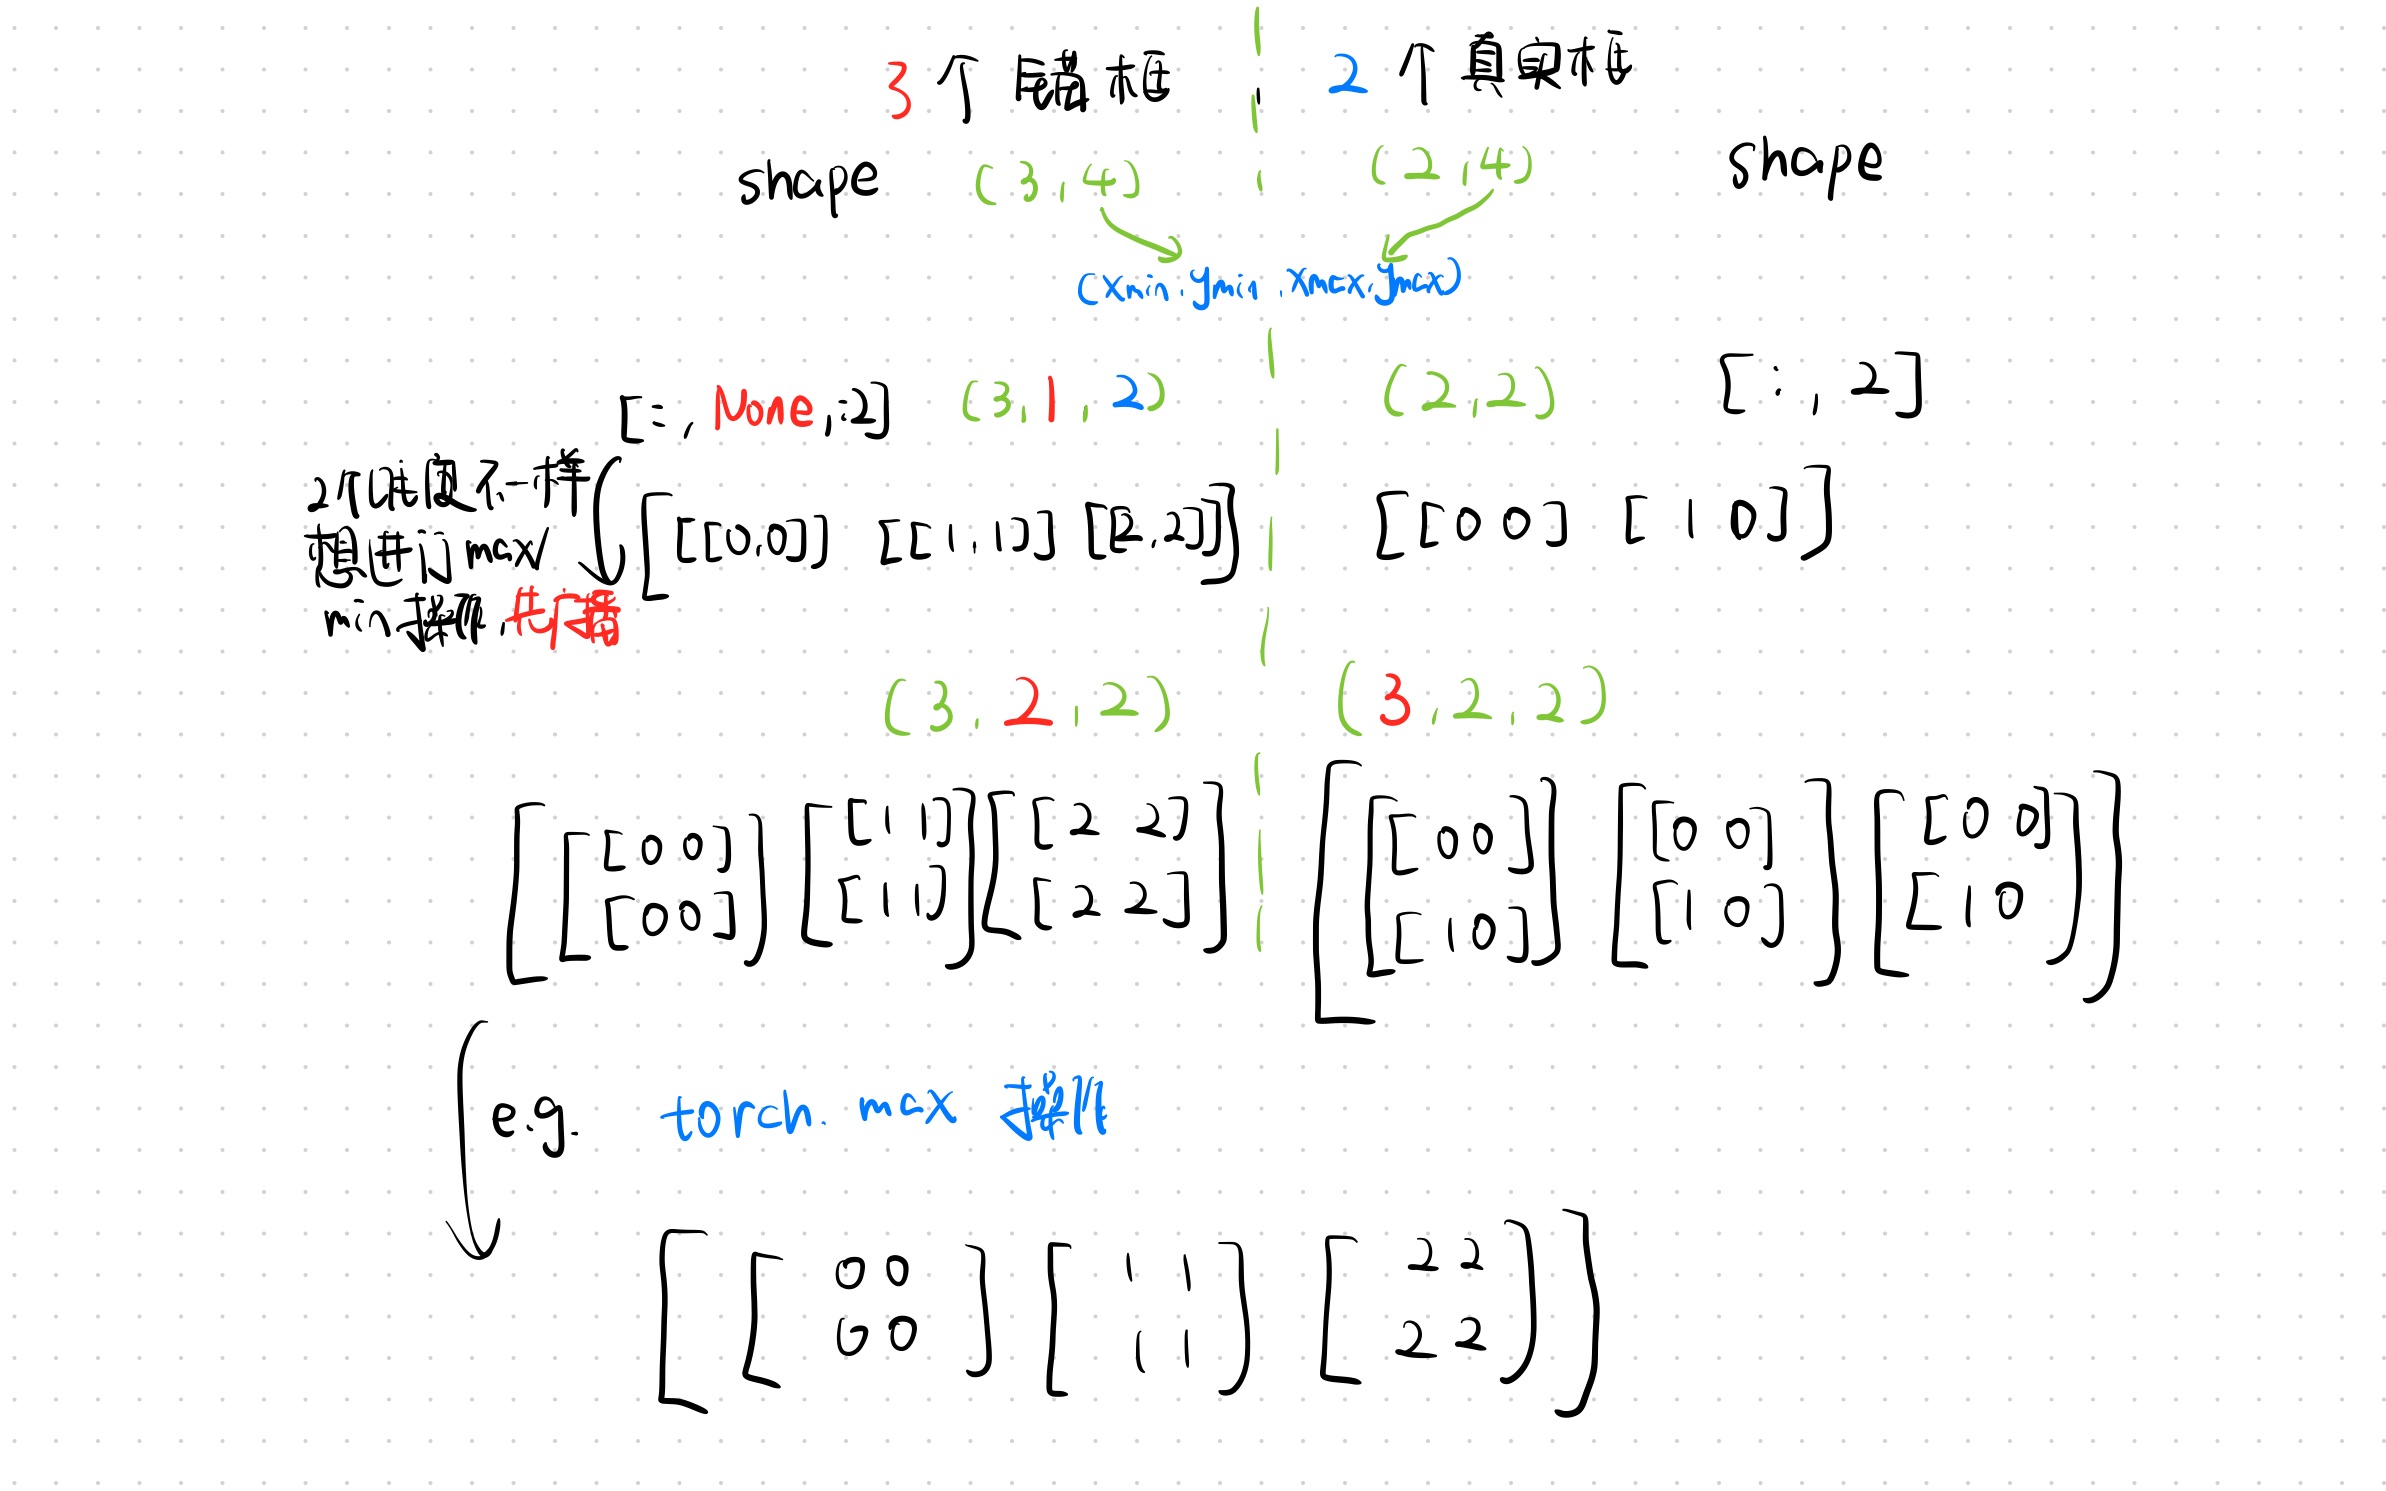 3个尾锚框 , 2个真实框
shape (3,4) (2,4) shape
(xmin.ymin.xmax.ymax)
[:,None,:2] (3,1,2) (2,2) [:,2]
2个维度不一样
想进行max/
min操作,先广播
[[[0,0]] [[1,1]] [[2,2]]] [[0 0] [1 0]]
(3,2,2) (3,2,2)
[[[0 0] [[1 1] [[2 2] [[[0 0] [[0 0] [[0 0]
[0 0]] [1 1]] [2 2]] [1 0]] [1 0]] [1 0]]]
e.g. torch.max操作
[[0 0 [1 1 [2 2
0 0] 1 1] 2 2]]